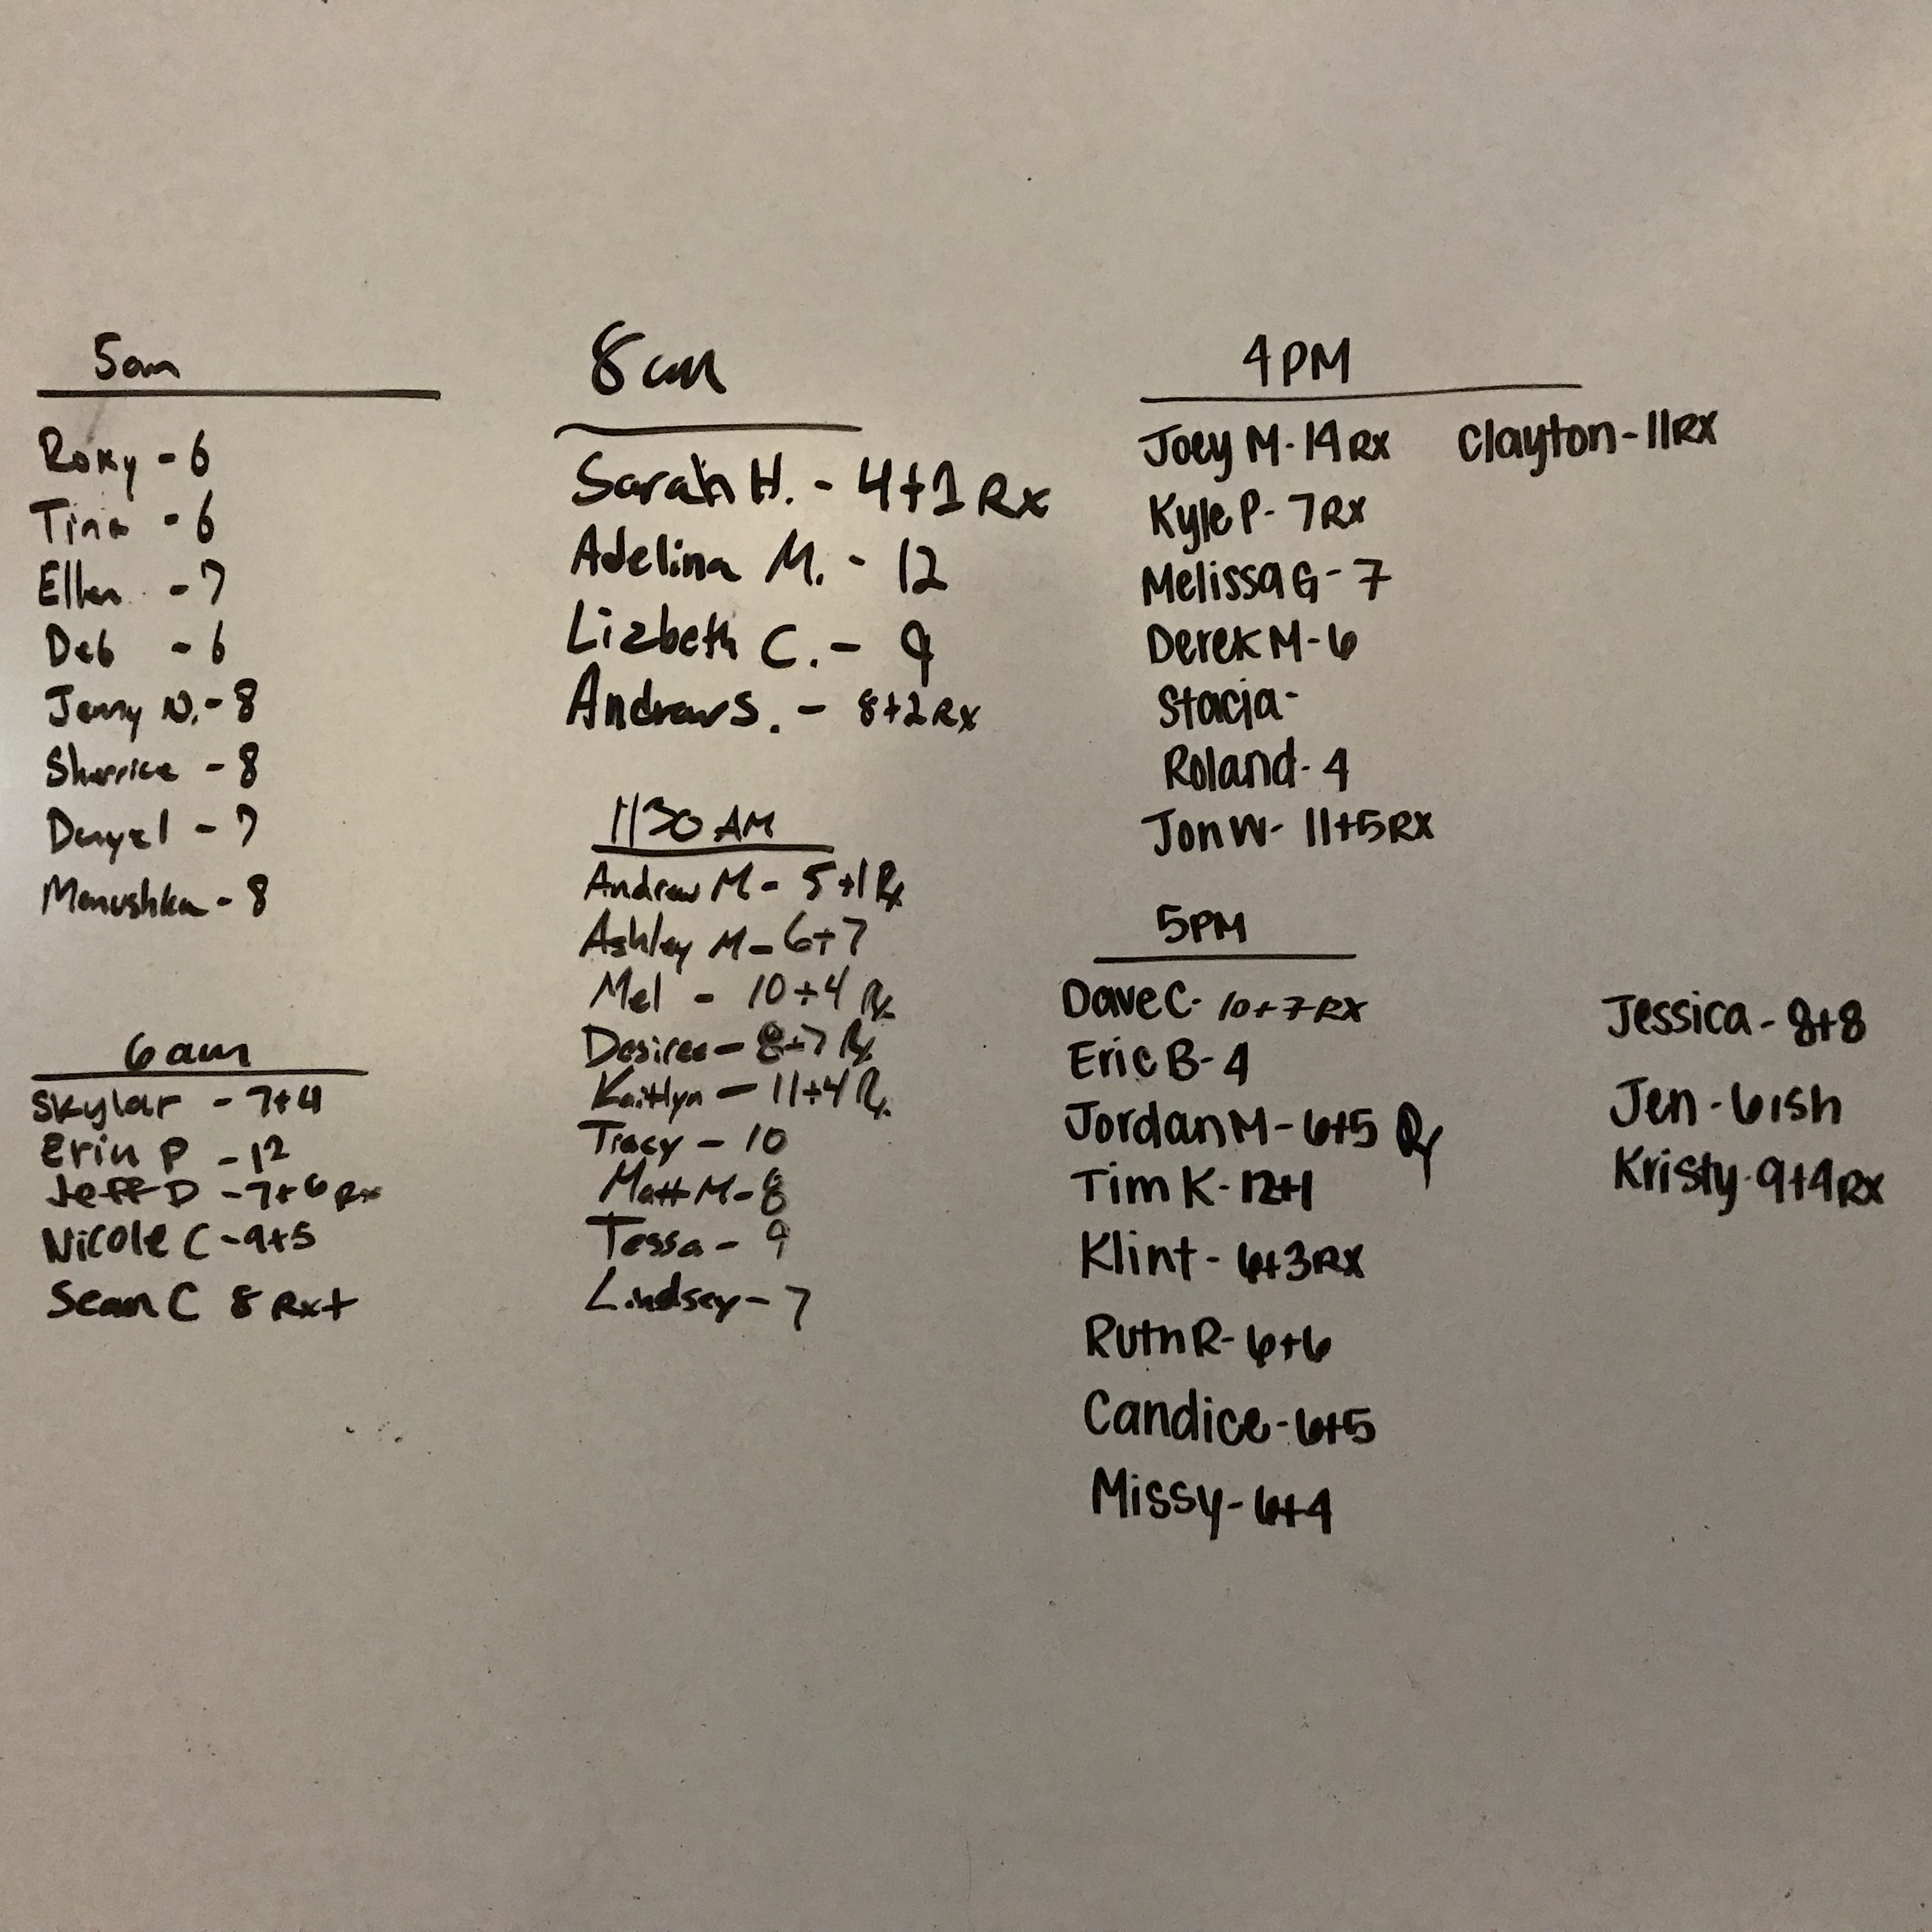 5am
Roxy - 6
Tina - 6
Ellen - 7
Deb - 6
Jenny N. - 8
Sherrice - 8
Denyel - 7
Menushka - 8
6am
Skylar - 7+4
Erin P - 12
Jeff D - 7+6 Rx
Nicole C - 9+5
Sean C 8 Rx+
8am
Sarah H. - 4+1 Rx
Adelina M. - 12
Lizbeth C. - 9
Andrew S. - 8+2 Rx
1130 AM
Andrew M - 5+1 Rx
Ashley M - 6+7
Mel - 10+4 Rx
Desiree - 8+7 Rx
Kaitlyn - 11+4 Rx
Tracy - 10
Matt M - 8
Tessa - 9
Lindsey - 7
4PM
Joey M - 14 RX Clayton - 11RX
Kyle P - 7RX
Melissa G - 7
Derek M - 6
Stacia -
Roland - 4
Jon W - 11+5RX
5PM
Dave C - 10+7 RX
Eric B - 4
Jordan M - 6+5 Rx
Tim K - 12+1
Klint - 6+3RX
Ruth R - 6+6
Candice - 6+5
Missy - 6+4
Jessica - 8+8
Jen - 6ish
Kristy - 9+4RX